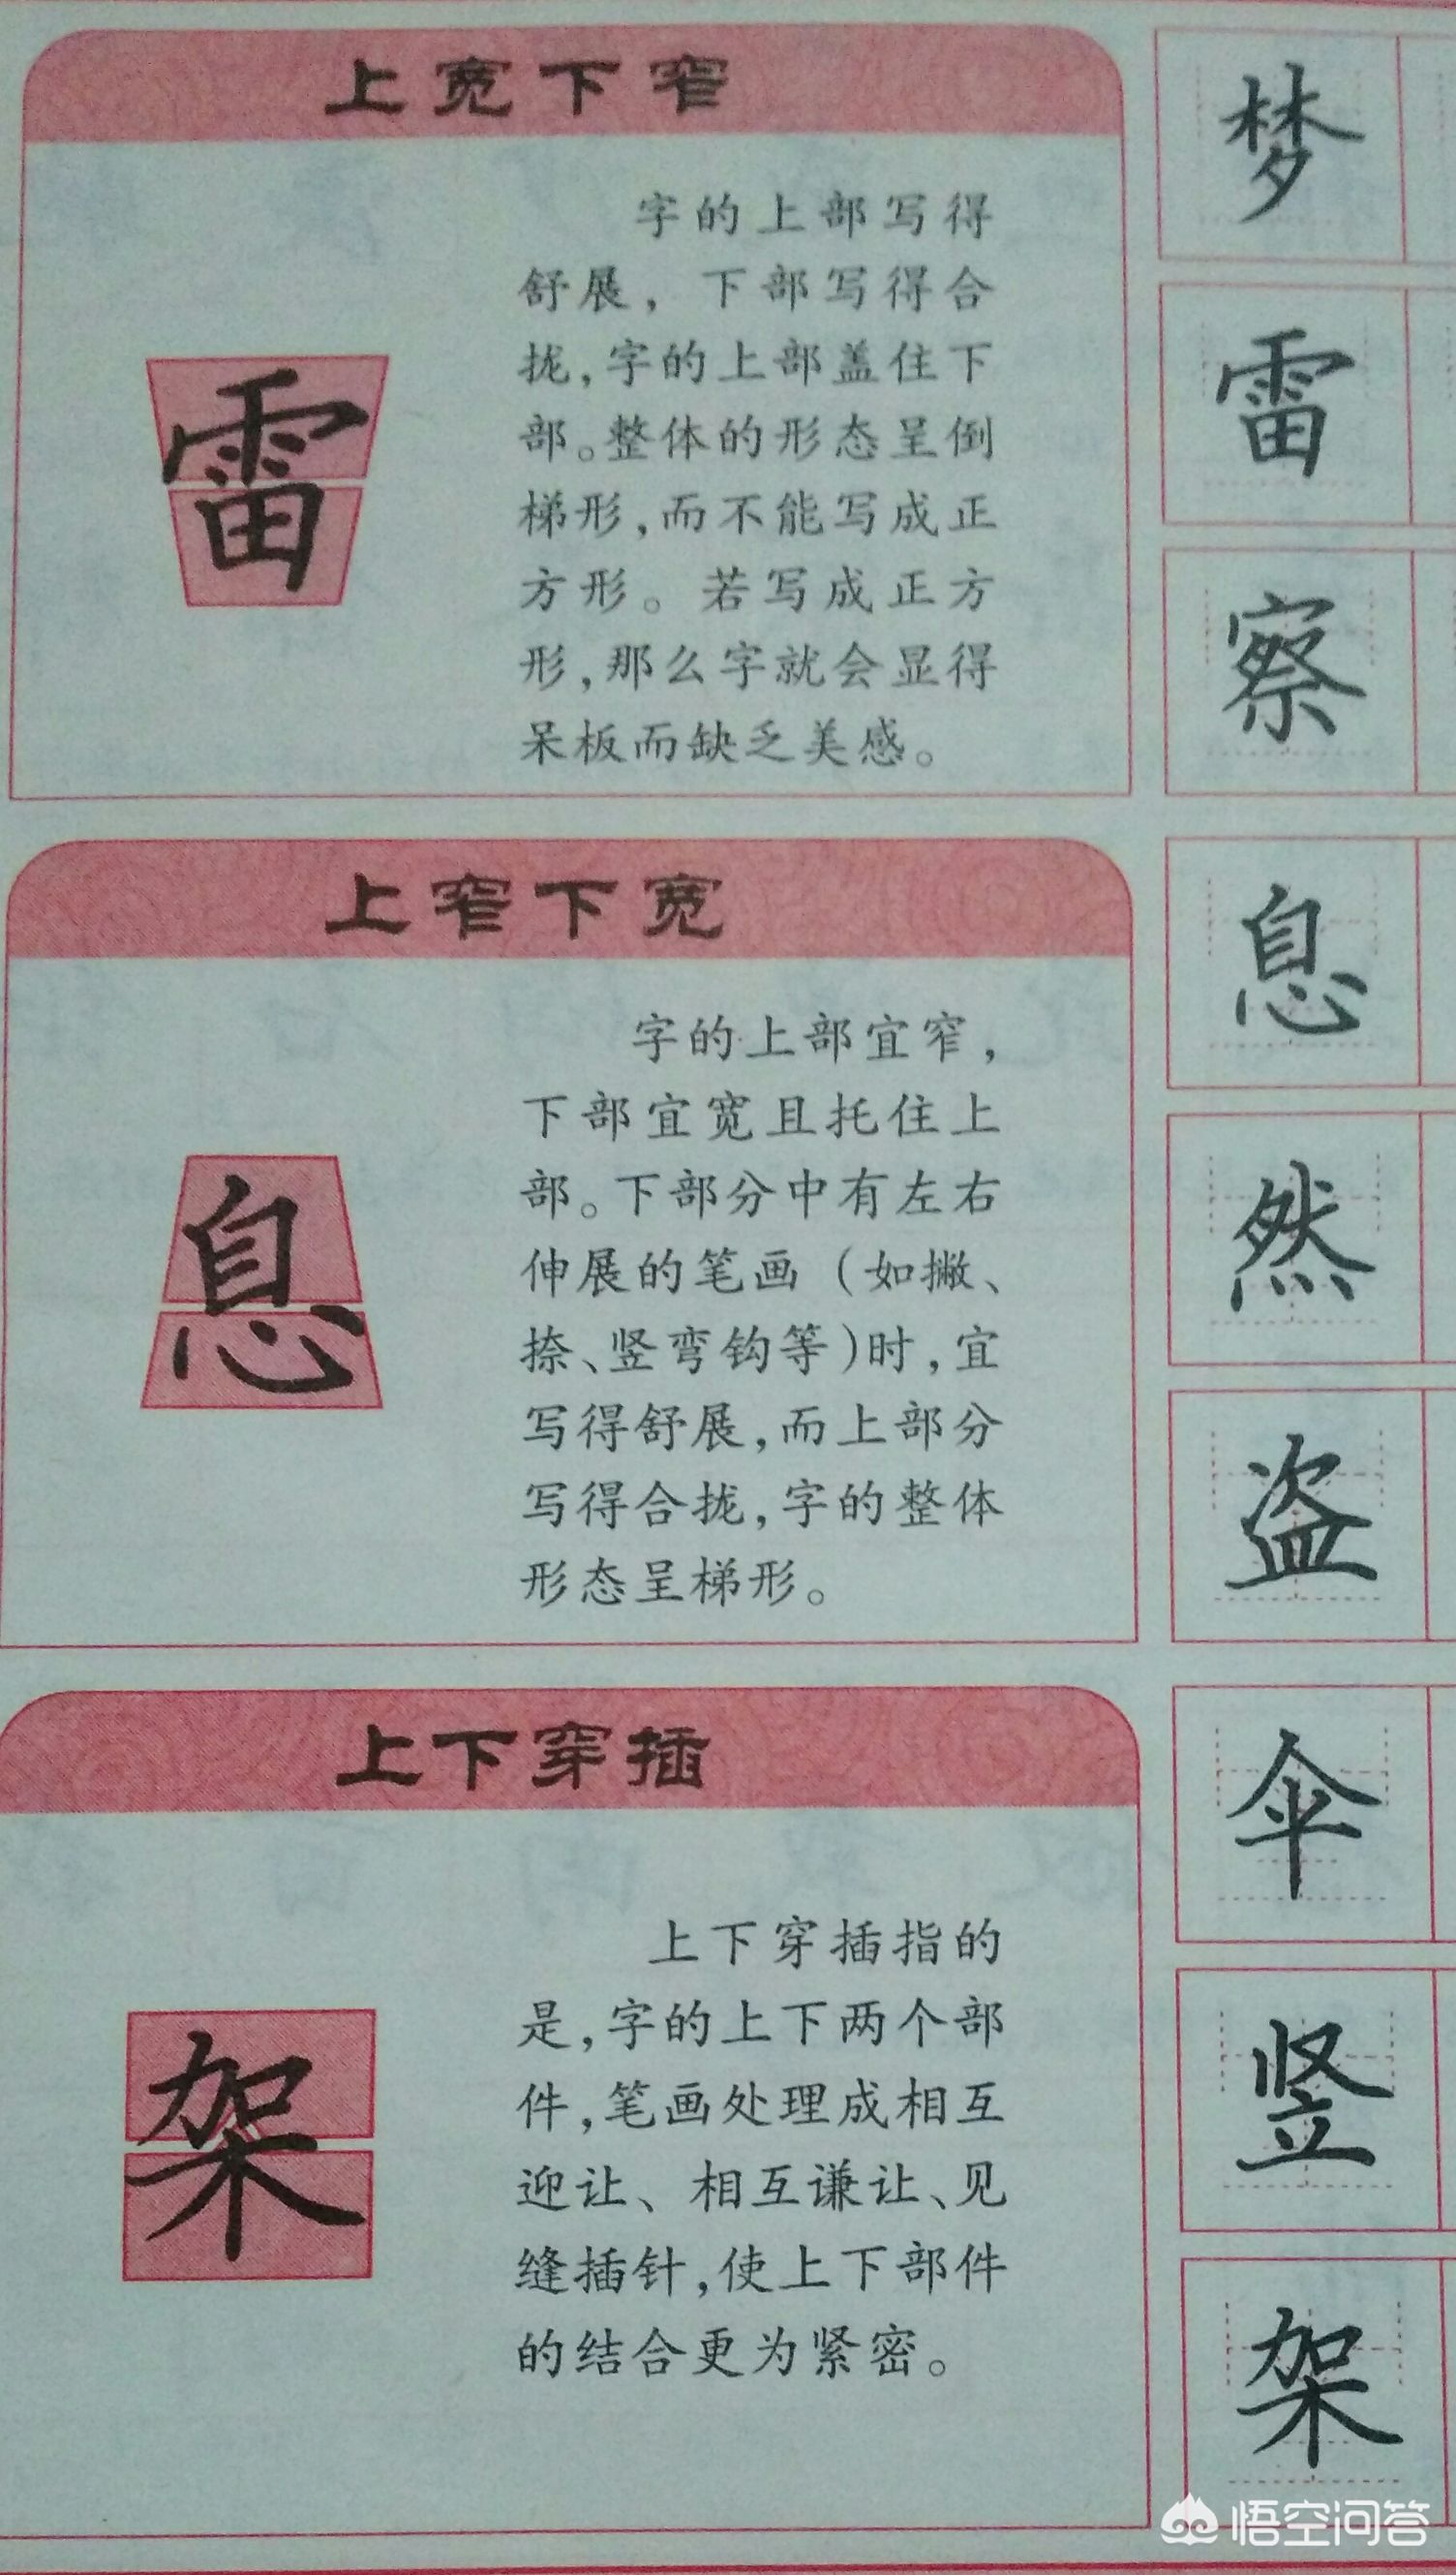 上宽下窄
雷
字的上部写得
舒展，下部写得合
拢，字的上部盖住下
部。整体的形态呈倒
梯形，而不能写成正
方形。若写成正方
形，那么字就会显得
呆板而缺乏美感。
梦
雷
察
上窄下宽
息
字的上部宜窄，
下部宜宽且托住上
部。下部分中有左右
伸展的笔画（如撇、
捺、竖弯钩等）时，宜
写得舒展，而上部分
写得合拢，字的整体
形态呈梯形。
息
然
盗
上下穿插
架
上下穿插指的
是，字的上下两个部
件，笔画处理成相互
迎让、相互谦让、见
缝插针，使上下部件
的结合更为紧密。
伞
竖
架
悟空问答